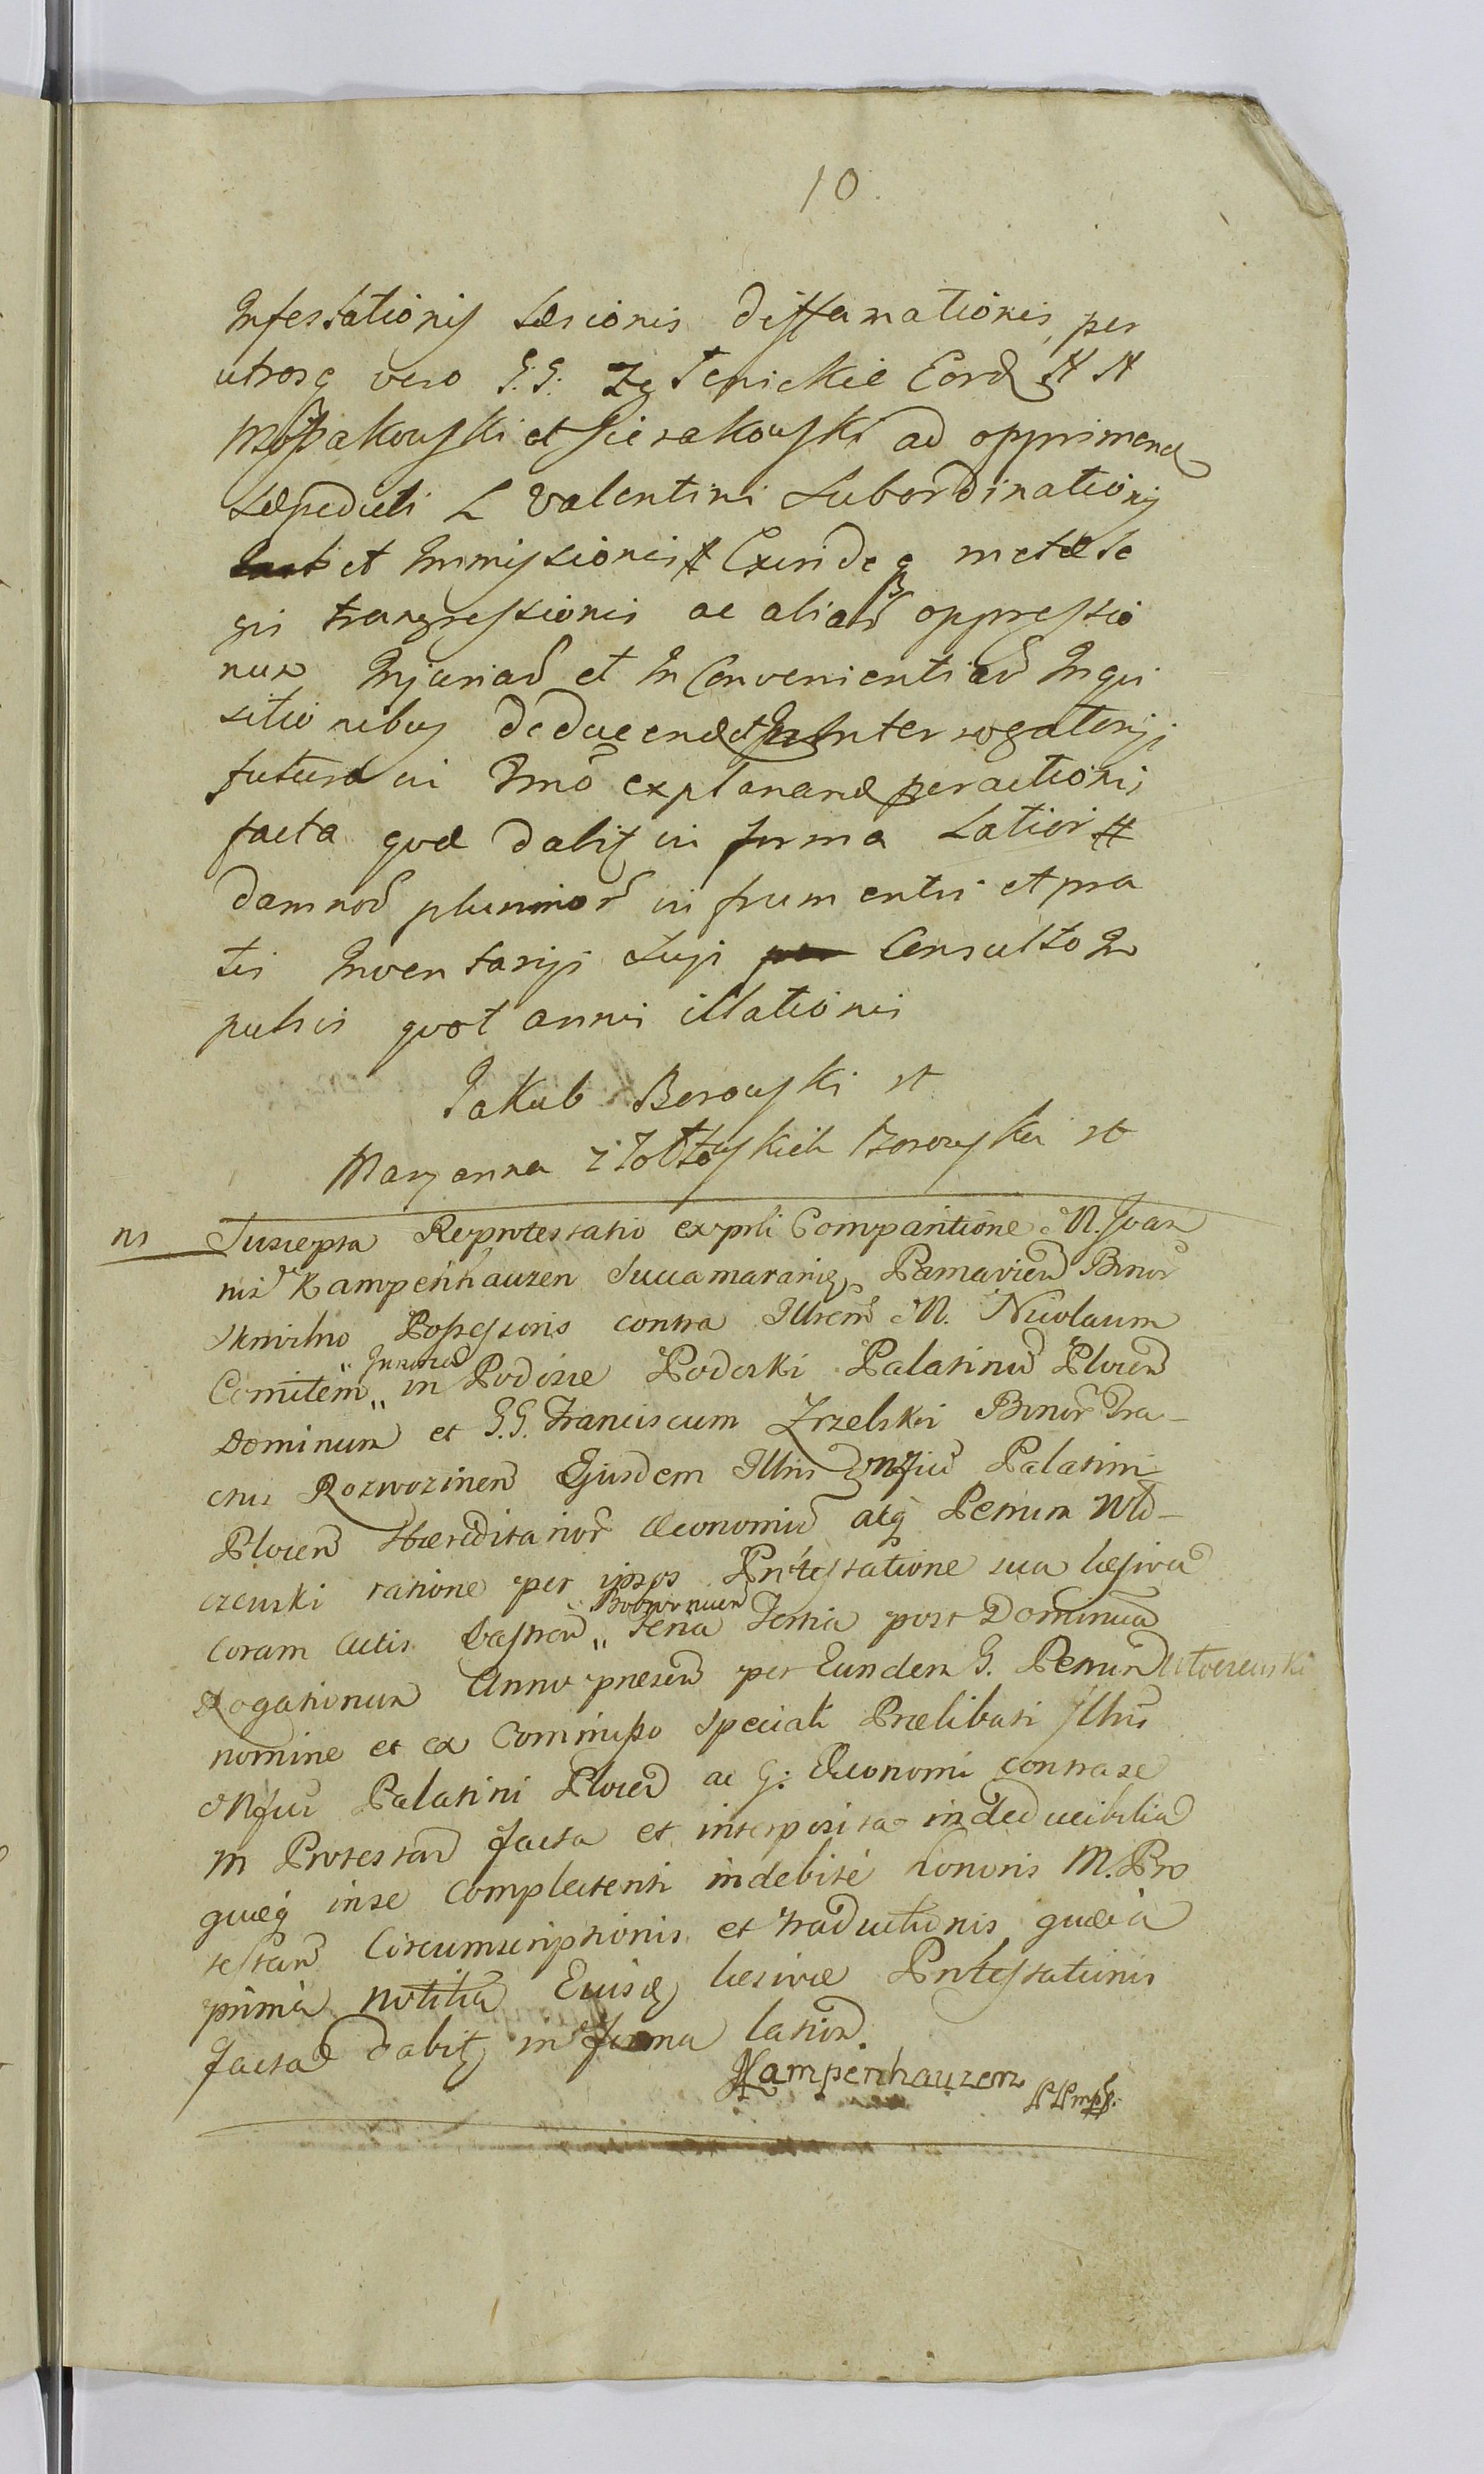 10
Infestationis Læsionis diffamationis, per
utrosq vero G.G. Coñ
et Sierakowski ad opprimend
sæpedicti L Valentini Subordinationis
et Immissionis Exindeq metæ Le
gis trangressionis ac aliar oppressio
num Injuriar et InConvenientiar Inqui
sitionibus deducend et Interrogatorijs
futur in Tmo explanand peractionis
facta quæ dabit in forma Latiori
damnor plurimor in frumentis et pra
tis Inventarijs Suis Consulto Im
pulsis quot annis illationis
Jakub Borowski
Maryanna z Zołtowskich Borowska
ns
Suscepta Reprotestatio ex parti Comparitione M. Joan
nis Kampenhauzen Succamerarij Parnavien Bnor
Skrwilno Possessoris contra Illrem M. Nicolaum
Comitem „ in Podosie Podoski Palatinum Plocen
„ Junosza
Dominum et G.G. Franciscum Zrzelski Bnor Tra-
ctus Rozwozinen Ejusdem Illris Mfici Palatini
Plocen Hæreditarior Œconomum atq Petrum Wło-
czewski ratione per ipsos Prótestatione sua læsiva
Coram Actis Castren „ Feria Tertia post Dominicam
„ Bobrovnicen
Rogationum Anno præsen per Eundem G. Petrum Włoczewski
nomine et ex Commisso Speciali Prælibati Illris
Mfici Palatini Plocen ac G: Œconomi contra se
M Protestan facta et interposita indeducibilia
quæq in se complectenti indebitè honoris M. Pro
testan Circumscriptionis et traductionis quæ à
prima notitia Ejusd læsivæ Protestationis
facta dabit in forma latior.
Kampenhauzen mpp.